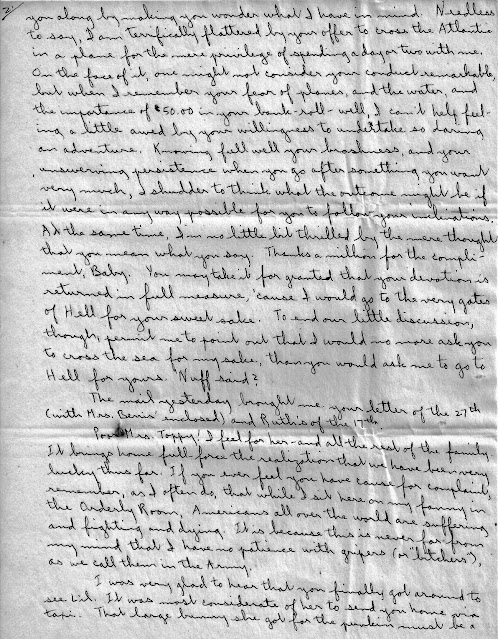 3.
you along by making you wonder what I have in mind. Needless
to say, I am terrifically flattered by your offer to cross the Atlantic
in a plane for the mere privilege of spending a day or two with me.
On the face of it, one might not consider your conduct remarkable,
but when I remember your fear of planes, and the water, and
the importance of $50.00 in your bank-roll - well, I can't help feel-
ing a little awed by your willingness to undertake so daring
an adventure. Knowing full well your brashness, and your
unswerving persistence when you go after something you want
very much, I shudder to think what the outcome might be if
it were in any way possible for you to follow your inclinations.
At the same time, I'm no little bit thrilled by the mere thought
that you mean what you say. Thanks a million for the compli-
ment, Baby. You may take it for granted that your devotion is
returned in full measure, 'cause I would go to the very gates
of Hell for your sweet sake. To end our little discussion,
though, permit me to point out that I would no more ask you
to cross the sea for my sake, than you would ask me to go to
Hell for yours. Nuff said?
The mail yesterday brought me your letter of the 27th
(with Mrs. enclosed) and Ruthie's of the 17th.
Poor Mrs. Toppy! I feel for her - and all the rest of the family.
It brings home full force the realization that we have been very
lucky thus far. If you ever feel you have cause for complaint,
remember, as I often do, that while I sit here on my fanny in
the Orderly Room, Americans all over the world are suffering
and fighting and dying. It is because this is never far from
my mind that I have no patience with gripers (or 'bitchers'),
as we call them in the Army.
I was very glad to hear that you finally got around to
see Lil. It was most considerate of her to send you home in a
taxi. That large bunny she got for the punkin must be a